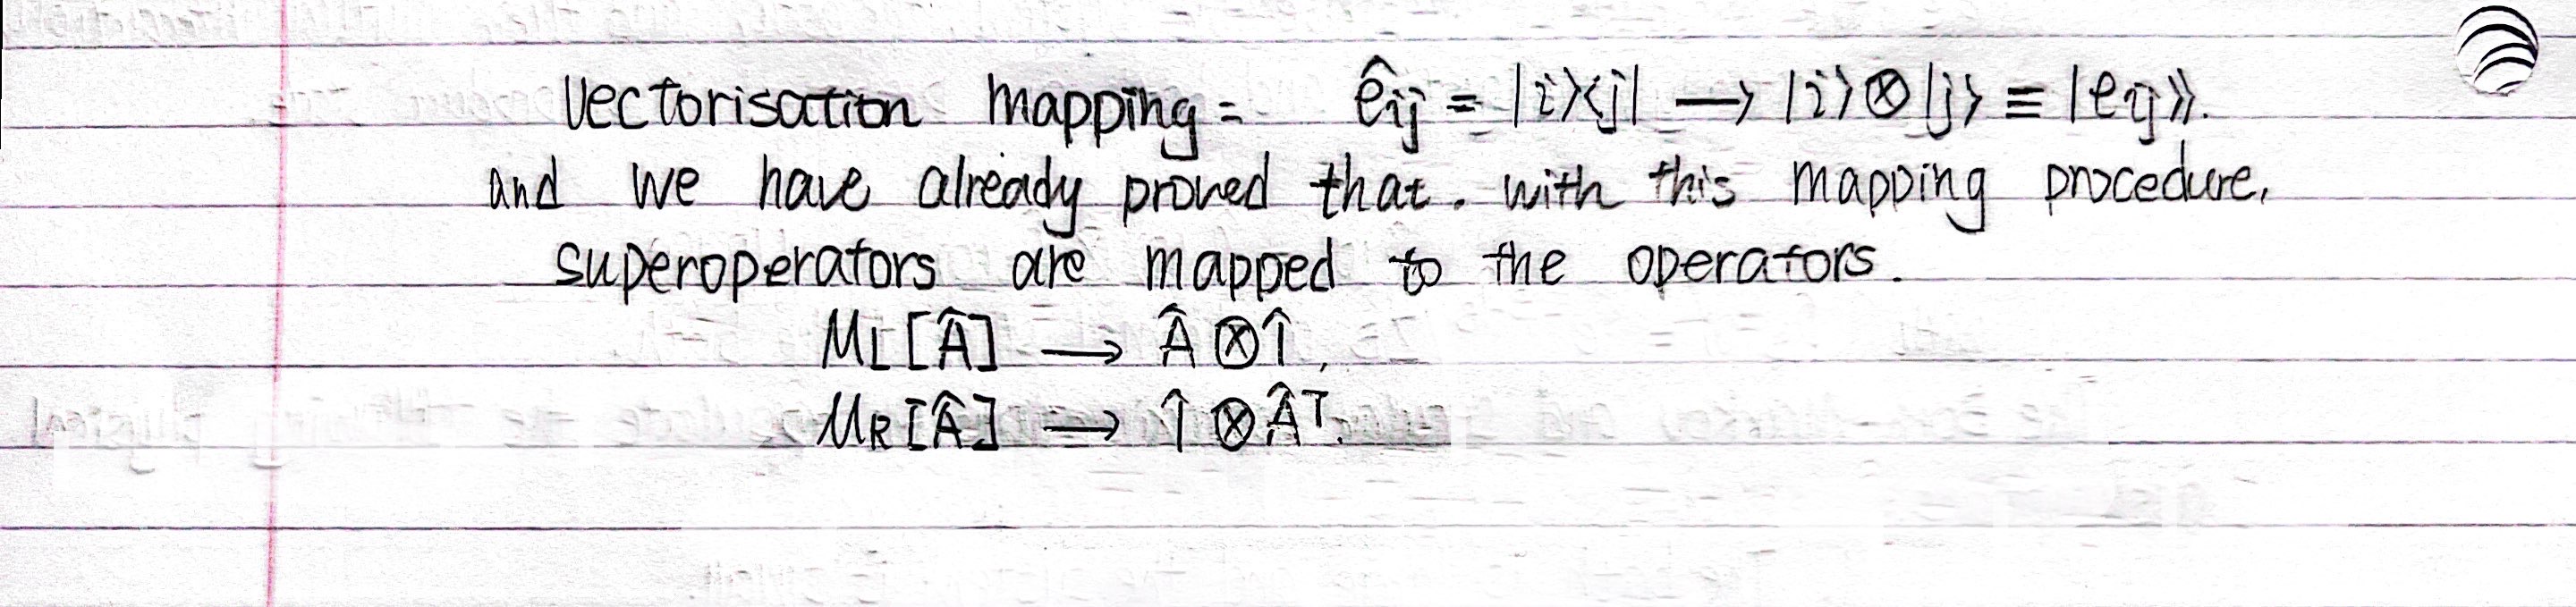 Vectorisation mapping = ê_ij = |i⟩⟨j| → |i⟩⊗|j⟩ ≡ |e_ij⟩⟩.
and we have already proved that. with this mapping procedure,
superoperators are mapped to the operators.
M_L[Â] → Â⊗1̂,
M_R[Â] → 1̂⊗Â^T.